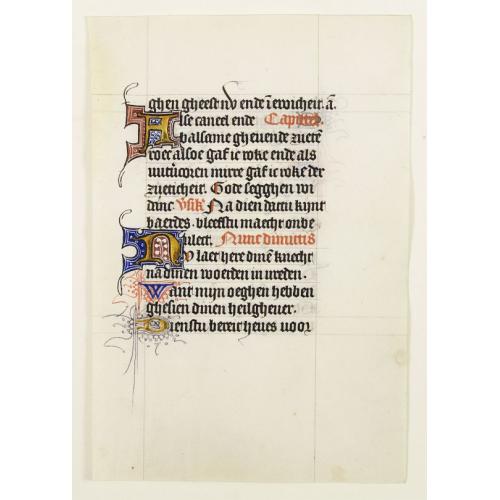 ghen gheest nv ende ī ewicheit. ā.
Alse caneel ende Capittel.
balsame ghevende zueten
roec alsoe gaf ic roke ende als
wtuercoren mirre gaf ic roke der
zueticheit. Gode segghen wi
danc. vsik. Na dien dattu kynt
baerdes. bleefstu maecht onbe
vlect. Nunc dimittis
Nv laet here dinē knecht
na dinen woerden in vreden.
Want mijn oeghen hebben
ghesien dinen heilghever.
Dienstu bereit heues voor